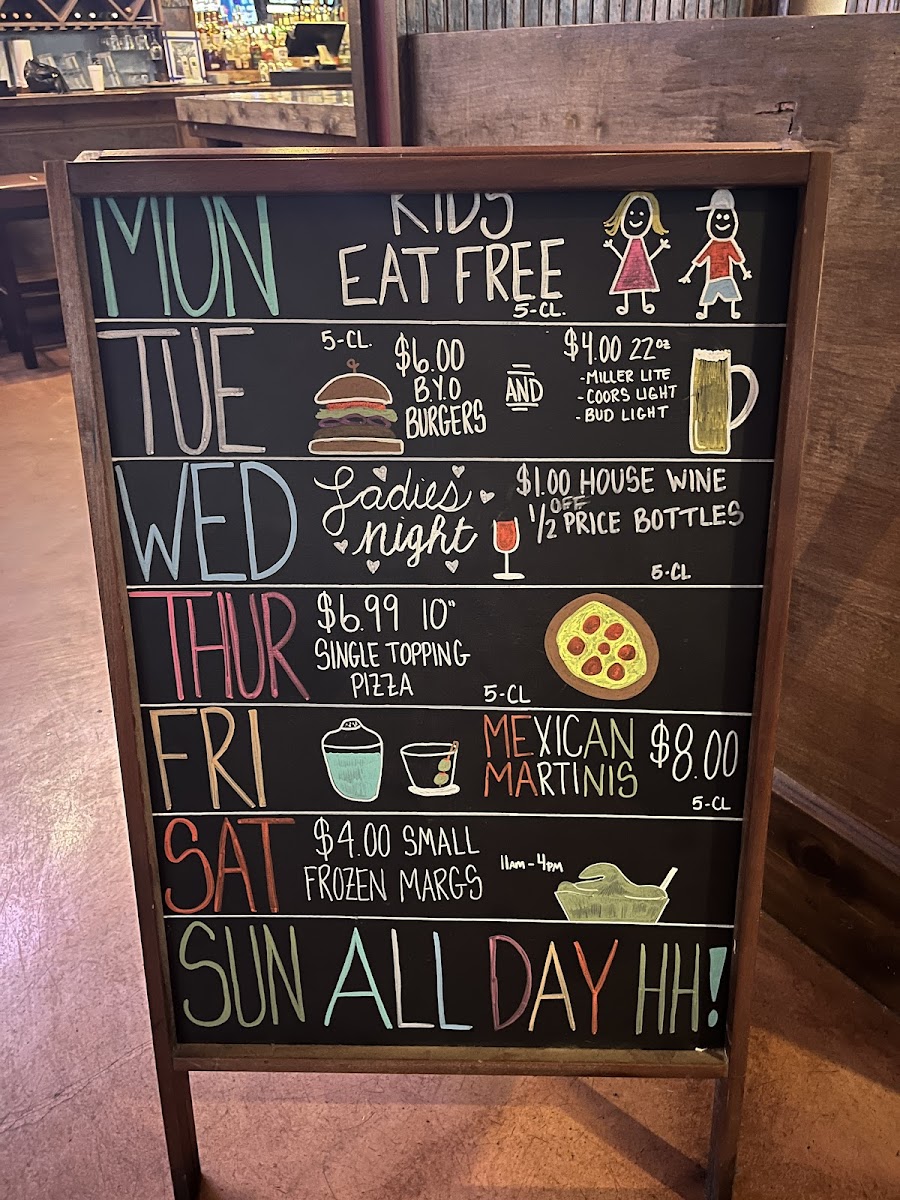 MON
KIDS
EAT FREE
5-CL.
TUE
5-CL.
$6.00
B.Y.O
BURGERS
AND
$4.00 22oz
-MILLER LITE
-COORS LIGHT
-BUD LIGHT
WED
Ladies
night
$1.00 HOUSE WINE
OFF
1/2 PRICE BOTTLES
5-CL
THUR
$6.99 10"
SINGLE TOPPING
PIZZA
5-CL
FRI
MEXICAN
MARTINIS
$8.00
5-CL
SAT
$4.00 SMALL
FROZEN MARGS
11AM-4PM
SUN ALL DAY HH!